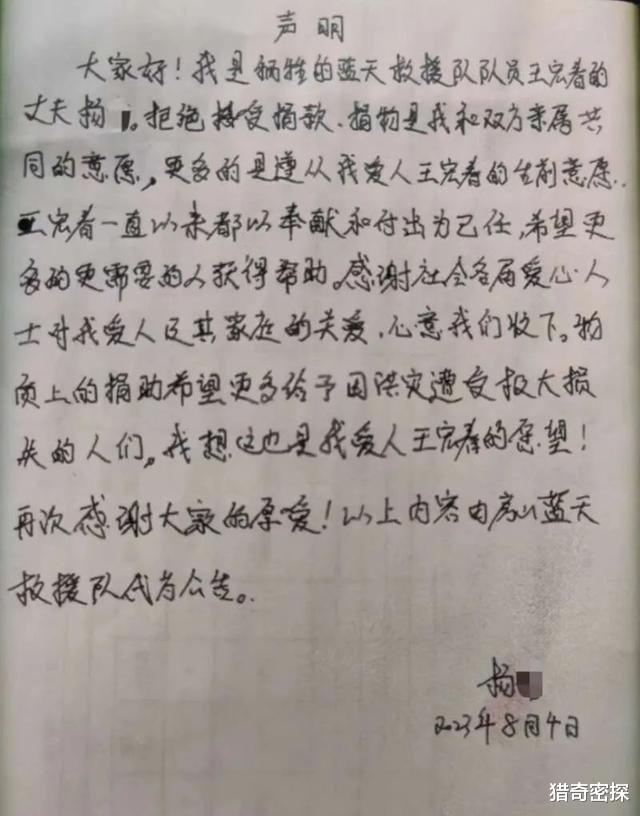 声明
大家好！我是牺牲的蓝天救援队队员王宏春的
丈夫杨。拒绝接受捐款、捐物是我和双方亲属共
同的意愿，更多的是遵从我爱人王宏春的生前意愿.
王宏春一直以来都以奉献和付出为己任，希望更
多的更需要的人获得帮助。感谢社会各届爱心人
士对我爱人及其家庭的关爱、心意我们收下。物
质上的捐助希望更多给予因洪灾遭受极大损
失的人们，我想这也是我爱人王宏春的愿望！
再次感谢大家的厚爱！以上内容由房山蓝天
救援队代为公告。
杨
2023年8月4日
猎奇密探